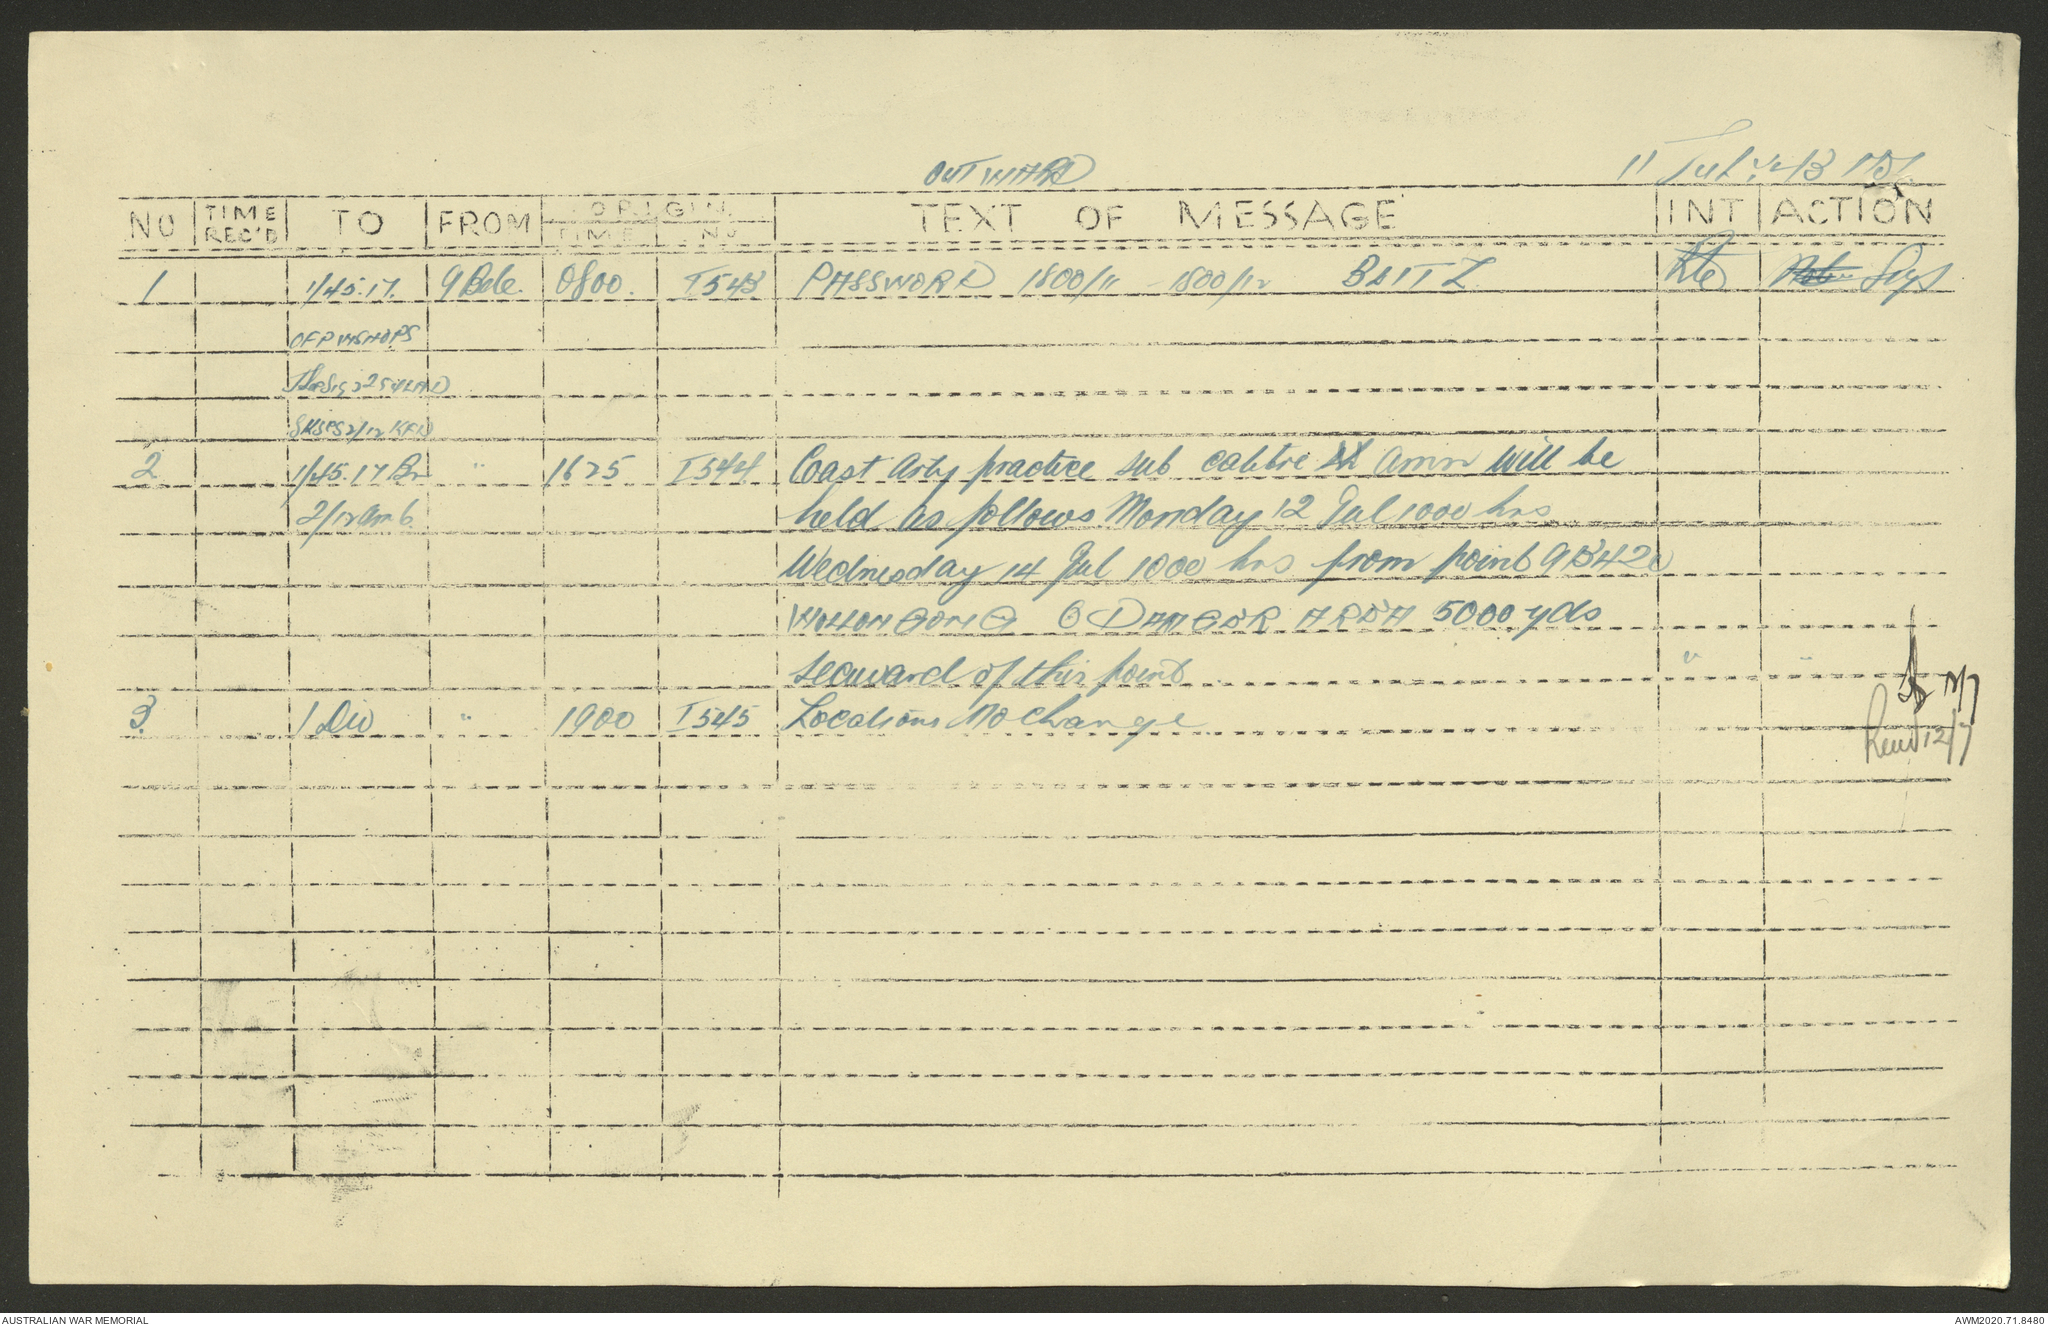 OUTWARD
11 Jul 43
NO TIME REC'D TO FROM ORIGIN TIME NO TEXT OF MESSAGE INT ACTION
1 1/45.17. 9 Bde. 0800. I543 PASSWORD 1800/11 - 1800/12 Sigs
OFP WKSHOPS
2 1/45.17 Bn " 1625 I544 Coast Arty practice sub calibre amm will be
2/12 Amb. held as follows Monday 12 Jul 1000 hrs
Wednesday 14 Jul 1000 hrs from point
WOLLONGONG DANGER AREA 5000 yds
seaward of this point " "
3. 1 Div " 1900 I545 Locations No change
12/7
AUSTRALIAN WAR MEMORIAL AWM2020.71.8480